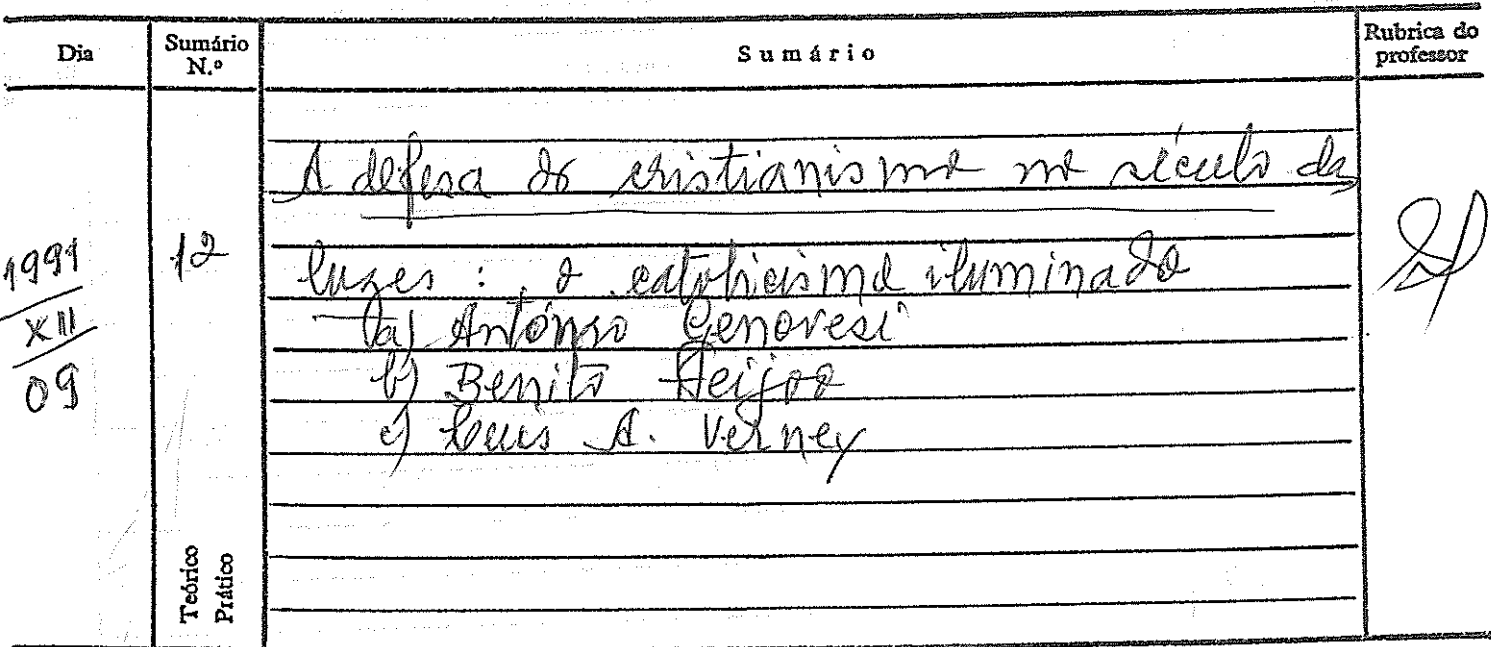 Dia
Sumário
N.º
Sumário
Rubrica do
professor
1991
XII
09
12
A defesa do cristianismo no século das
luzes : o catolicismo iluminado
a) António Genovesi
b) Benito Feijoo
c) Luís A. Verney
Teórico
Prático